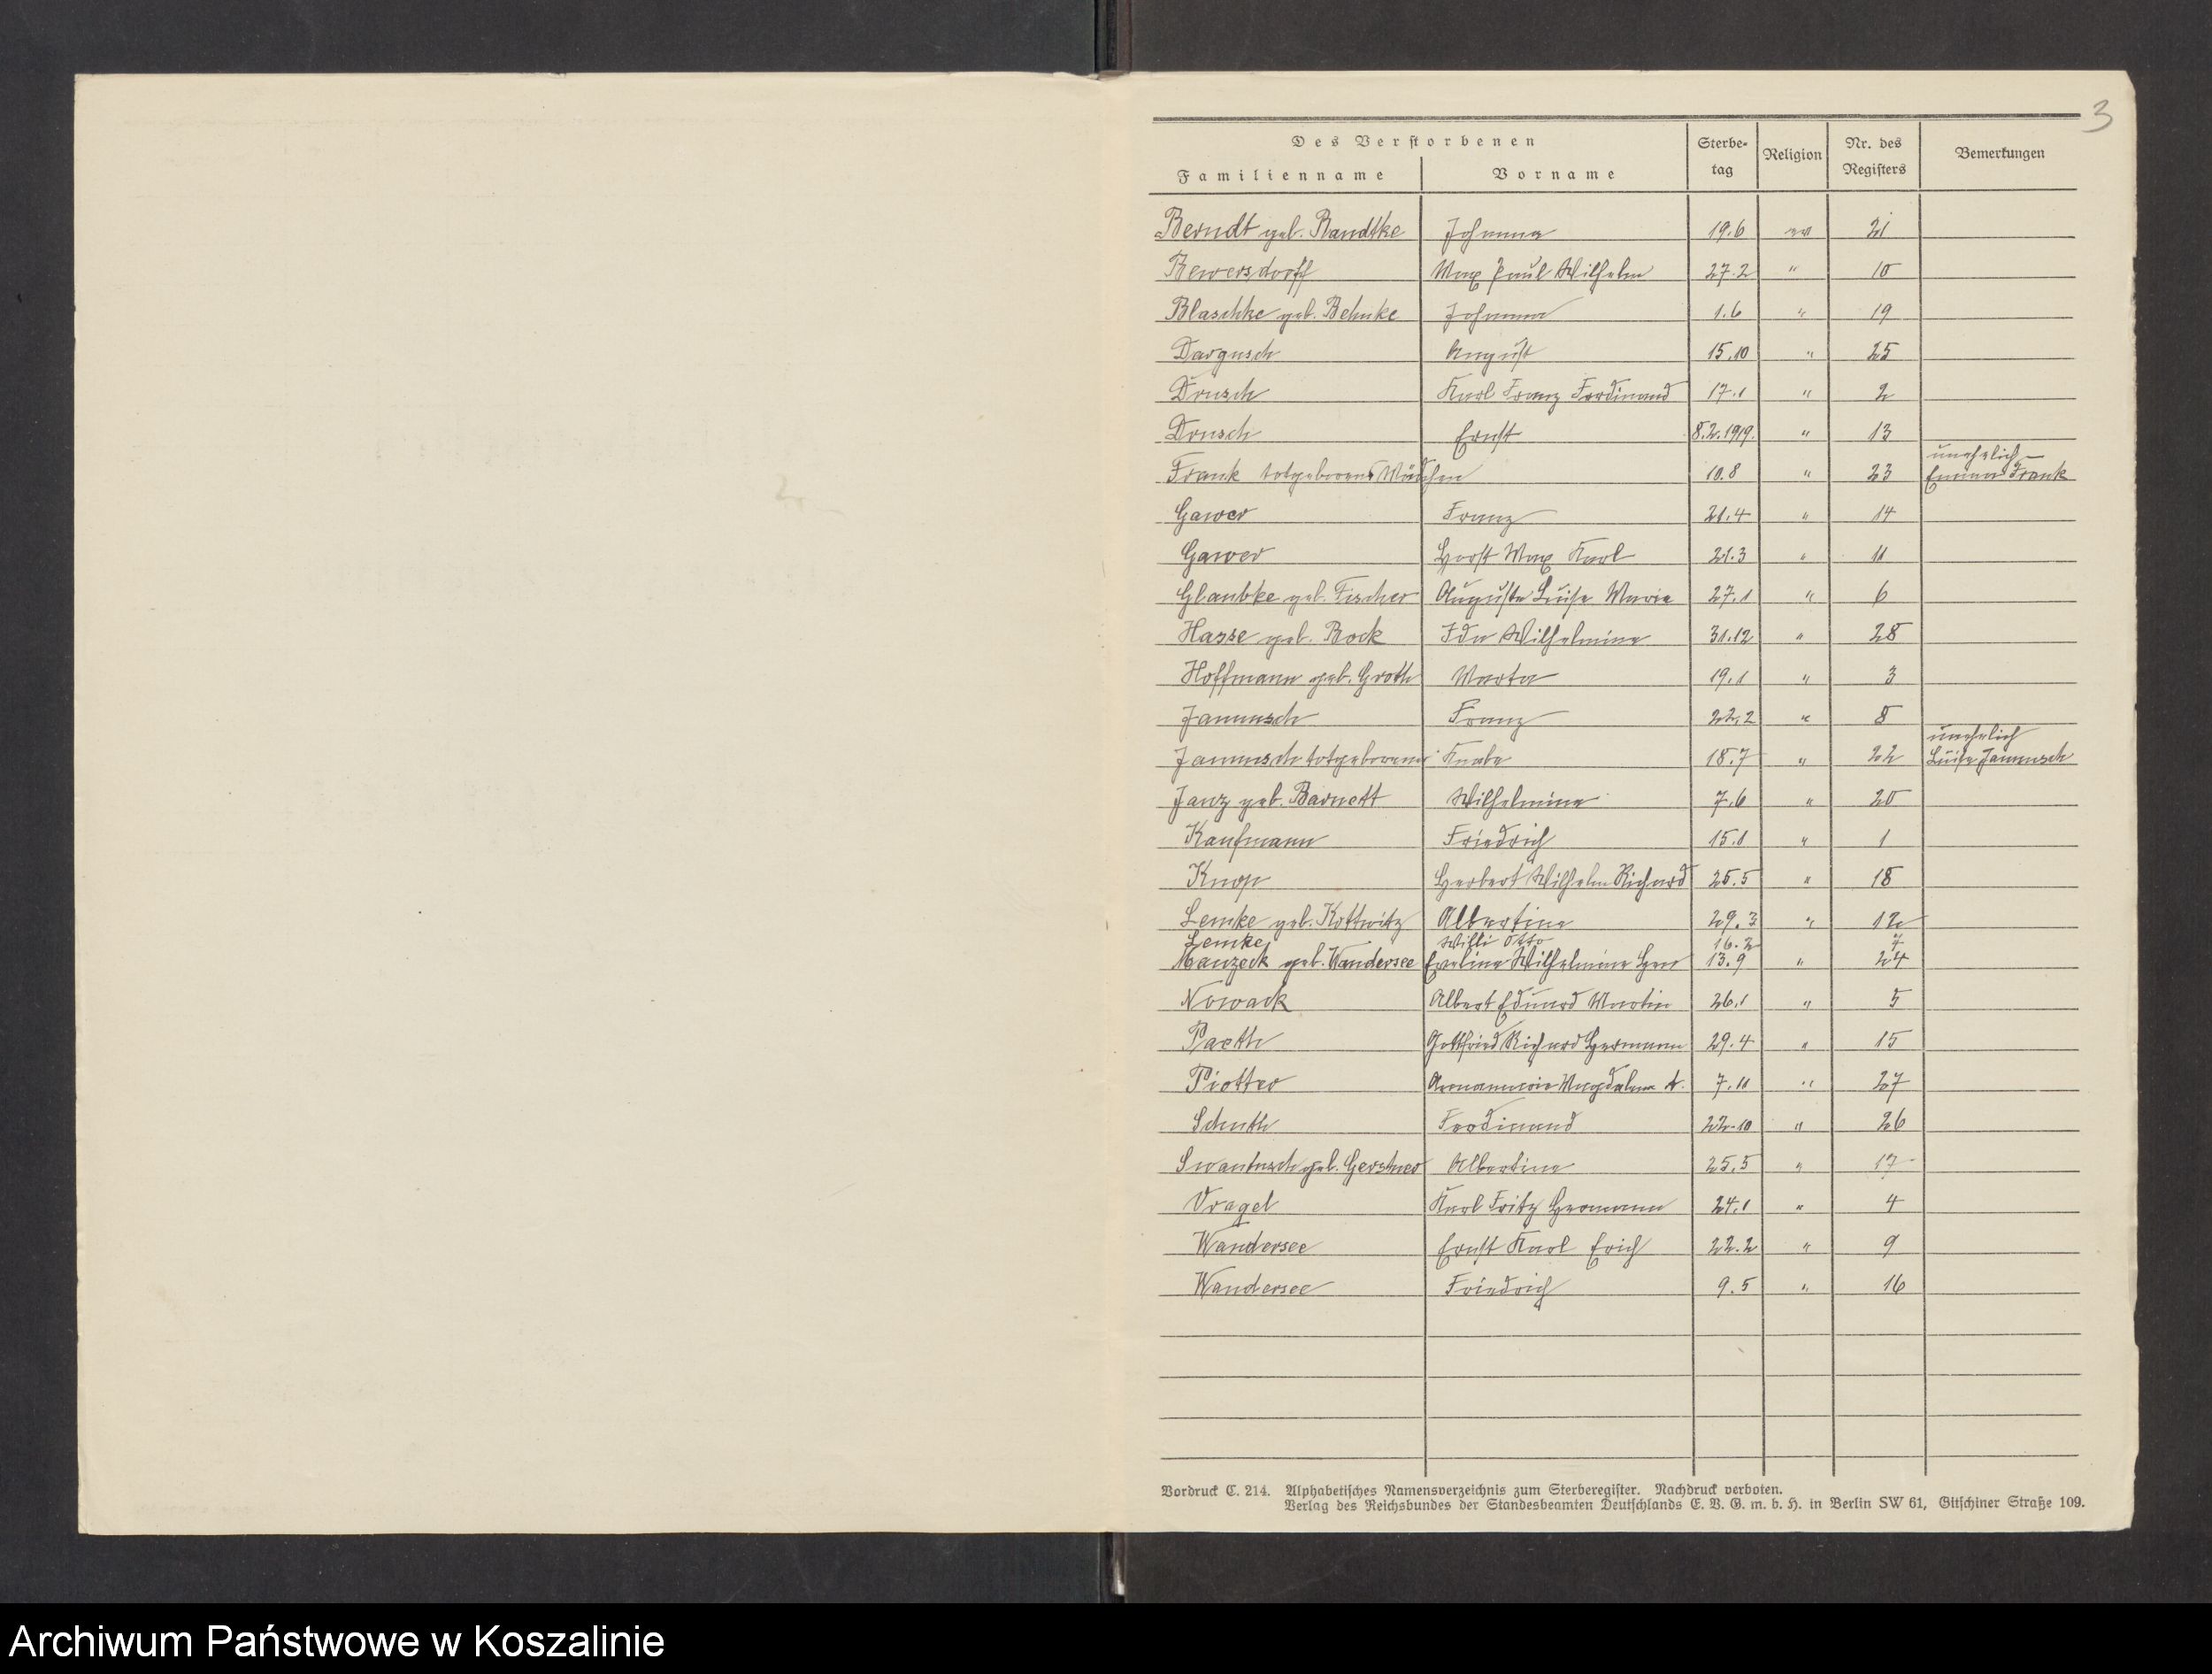 3
Des Verstorbenen
Familienname Vorname Sterbe-tag Religion Nr. des Registers Bemerkungen
Berndt geb. Bandtke Johanna 19.6 ev 21
Bewersdorff Max Paul Wilhelm 27.2 " 10
Blaschke geb. Behnke Johanna 1.6 " 19
Dargusch August 15.10 " 25
Drusch Karl Franz Ferdinand 17.1 " 2
Drusch Ernst 8.2.1919. " 13
Frank totgeborenes Mädchen 10.8 " 23 unehelich – Emma Frank
Gawer Franz 21.4 " 14
Gawer Horst Max Karl 21.3 " 11
Glaubke geb. Fischer Auguste Luise Marie 27.1 " 6
Hasse geb. Bock Ida Wilhelmine 31.12 " 28
Hoffmann geb. Groth Marta 19.1 " 3
Janusch Franz 22.2 " 8
Janusch totgeborener Knabe 18.7 " 22 unehelich Luise Janusch
Janz geb. Barnett Wilhelmine 7.6 " 20
Kaufmann Friedrich 15.1 " 1
Knop Herbert Wilhelm Richard 25.5 " 18
Lemke geb. Kottwitz Albertine 29.3 " 12
Lemke, Willi Otto 16.2 7
Manzeck geb. Wandersee Eveline Wilhelmine 13.9 " 24
Nowack Albert Eduard Martin 26.1 " 5
Paeth Gottfried Richard Hermann 29.4 " 15
Piotter Annamarie Magdalena 7.11 " 27
Schuth Ferdinand 22.10 " 26
Swantusch geb. Gerstner Albertine 25.5 " 17
Vragel Karl Fritz Hermann 24.1 " 4
Wandersee Ernst Karl Erich 22.2 " 9
Wandersee Friedrich 9.5 " 16
Vordruck C. 214. Alphabetisches Namensverzeichnis zum Sterberegister. Nachdruck verboten.
Verlag des Reichsbundes der Standesbeamten Deutschlands E. V. G. m. b. H. in Berlin SW 61, Gitschiner Straße 109.
Archiwum Państwowe w Koszalinie